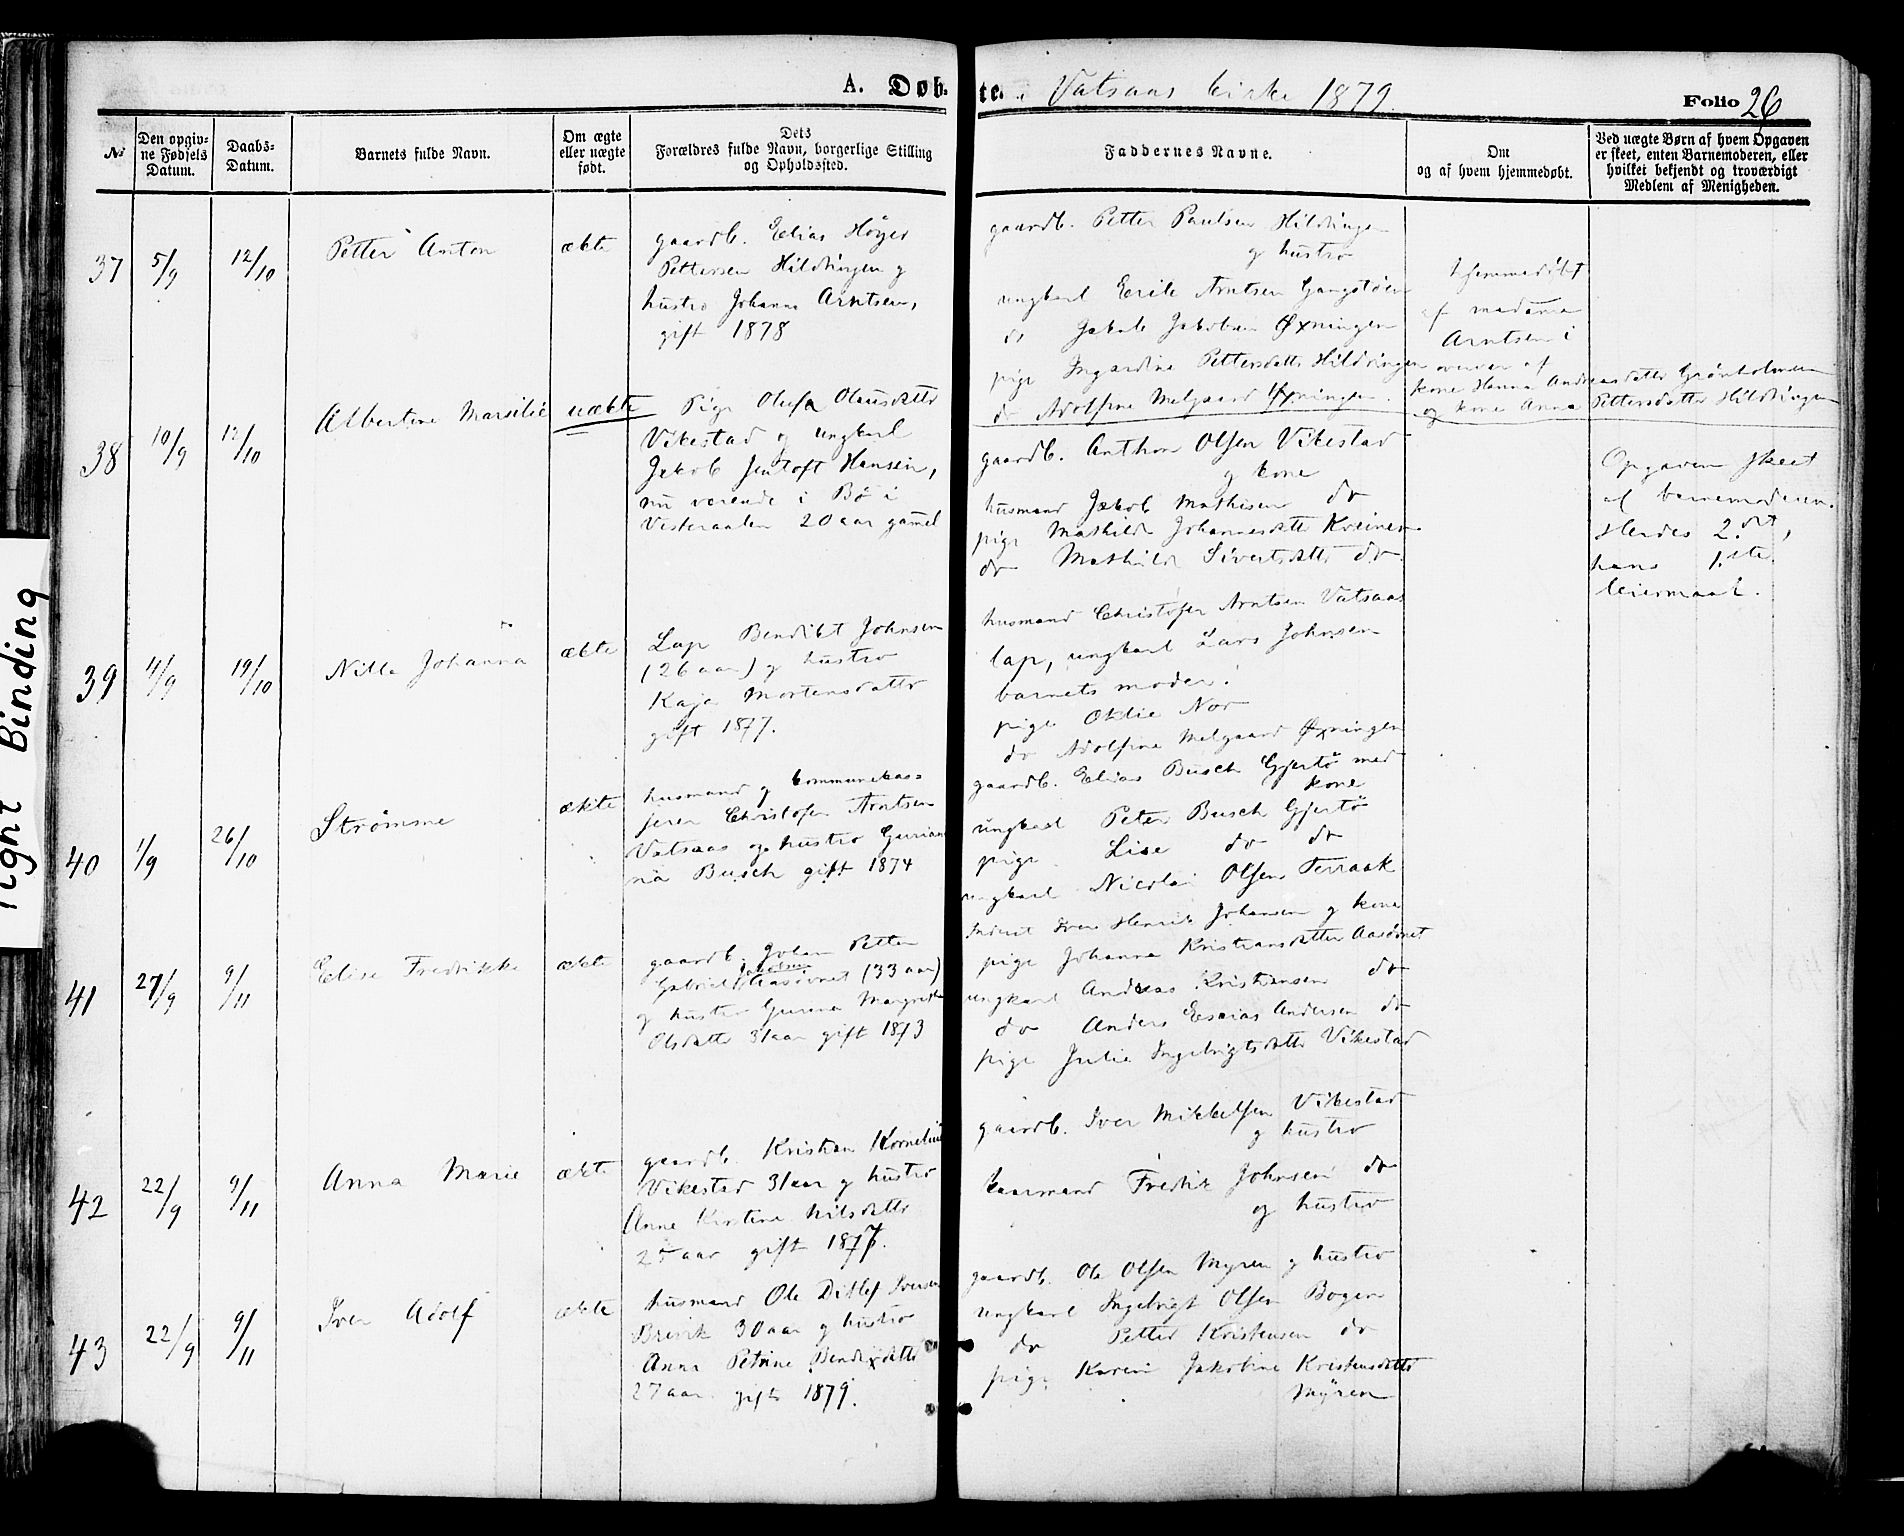 A. Døb-
te. i Vatsaas kirke 1879.
Folio 26
№
Den opgiv-
ne Fødsels
Datum.
Daabs-
Datum.
Barnets fulde Navn.
Om ægte
eller uægte
født.
Dets
Forældres fulde Navn, borgerlige Stilling
og Opholdssted.
Faddernes Navne.
Om
og af hvem hjemmedøbt.
Ved uægte Børn af hvem Opgaven
er skeet, enten Barnemoderen, eller
hvilket bekjendt og troværdigt
Medlem af Menigheden.
37 5/9 12/10 Petter Anton ækte
gaardb. Elias Höyer
Pettersen Hildringen og
hustro Johanna Arntsen,
gift 1878
gaardb. Petter Paulsen Hildringen
og hustro
ungkarl Erik Arntsen Gangstöen
do Jakob Jakobsen Øxningen
pige Ingardine Pettersdatter Hildringen
do Adolfine Melgaard Øxningen.
hjemmedöbt
af madama
Arntsen i
overvær af
kone Hanna Andreasdatter Grönholmen
og kone Anna Pettersdatter Hildringen
38 10/9 12/10 Albertine Marsilie uækte
Pige Olufa Olausdatter
Vikestad og ungkarl
Jakob Jentoft Hansen,
nu værende i Bö i
Vesteraalen 20 aar gamel
gaardb. Anthon Olsen Vikestad
og kone
husmand Jakob Mathisen do
pige Mathilde Johannesdatter
do Mathilde Sivertsdatter do
Opgaven skeet
af barnemoderen.
Hendes 2.det,
hans 1.ste
leiermaal.
39 4/9 19/10 Nilla Johanna ækte
Lap Bendikt Johnsen
(26 aar) og hustro
Kaja Mortensdatter
gift 1877.
husmand Christofer Arntsen Vatsaas
lap, ungkarl Lars Johnsen
barnets moder.
pige Otelie Nor
do Adolfine Melgaard Øxningen
40 1/9 26/10 Strømme ækte
husmand og kommunekas-
jerer Christofer Arntsen
Vatsaas og hustro Gurian-
na Busch gift 1874
gaardb. Elias Busch Gjertö med
kone
ungkarl Peter Busch Gjertö
pige Lise do do
ungkarl Nicolai Olsen Terraak
41 27/9 9/11 Elise Fredrikke ækte
gaardb. Johan Petter
Gabriel Jakobsen Aasövnet (33 aar)
og hustro Gurina Margrethe
Olsdatter 31 aar gift 1873
Inderst Iver Henrik Johansen og kone
pige Johanna Kristiansdatter Aasövnet
ungkarl Andreas Kristiansen do
do Anders Esaias Andersen do
pige Julie Ingebrigtsdatter Vikestad
42 22/9 9/11 Anna Marie ækte
gaardb. Kristian Kornelius
Vikestad 31 aar og hustro
Anne Kirstine Nilsdatter
25 aar gift 1877.
gaardb. Iver Mikkelsen Vikestad
og hustro
kaarmand Fredrik Johnsen do
og hustro
43 22/9 9/11 Iver Adolf ækte
husmand Ole Ditlef Iversen
Breivik 30 aar og hustro
Anna Petrine Bendixdatter
27 aar gift 1879.
gaardb. Ole Olsen Myren og hustro
ungkarl Ingebrigt Olsen Bogen
do Petter Kristensen do
pige Karen Jakobine Kristensdatter
Myren
Tight Binding